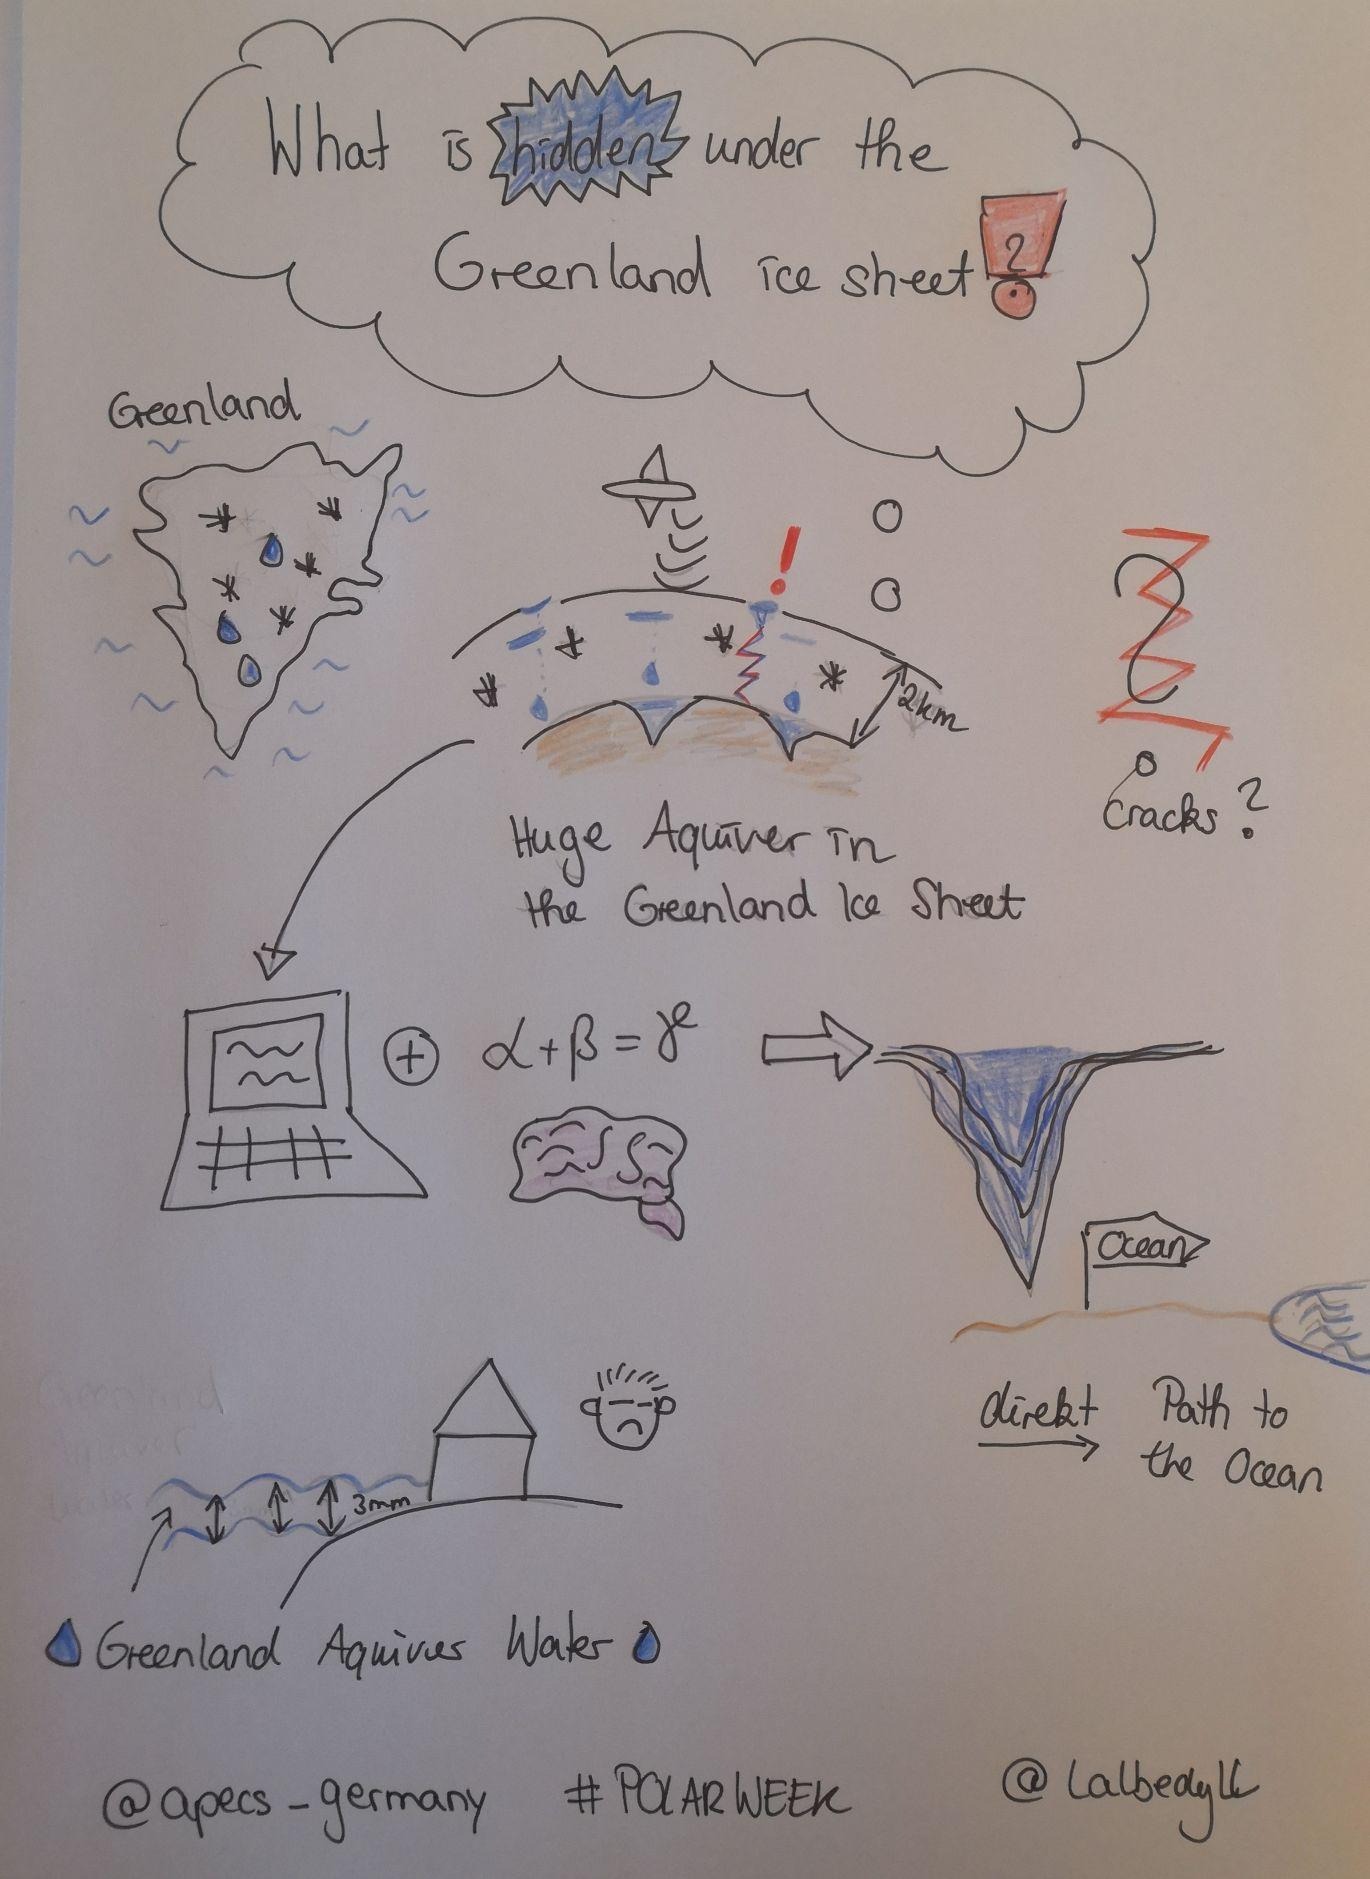 What is hidden under the
Greenland ice sheet ?
Greenland
2km
Cracks ?
Huge Aquiver in
the Greenland Ice Sheet
α + β = γ
Ocean
direkt Path to
the Ocean
3mm
Greenland Aquivers Water
@apecs_germany #POLARWEEK @Lalbedyll